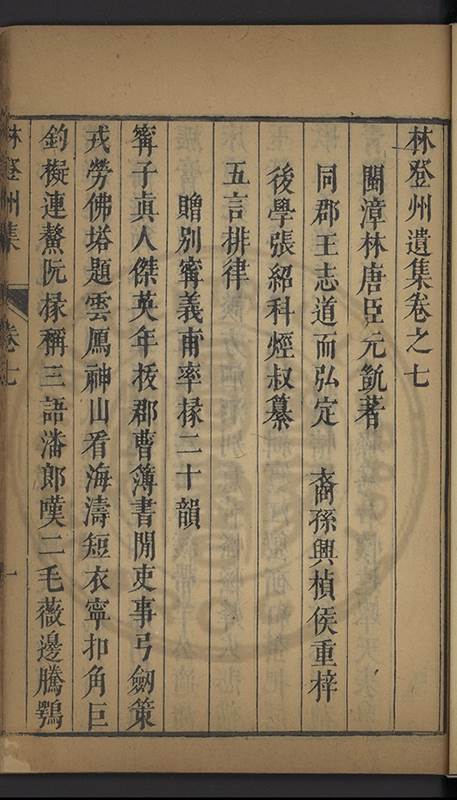 林登州遺集卷之七
閩漳林唐臣元凱著
同郡王志道而弘定　裔孫興楨侯重梓
後學張紹科烴叔纂
五言排律
贈別甯義甫率掾二十韻
甯子真人傑英年拔郡曹簿書閒吏事弓劒策
戎勞佛塔題雲鴈神山看海濤短衣寧扣角巨
釣擬連鰲阮掾稱三語潘郎嘆二毛薇邊騰鶚
林登州集　卷七　一